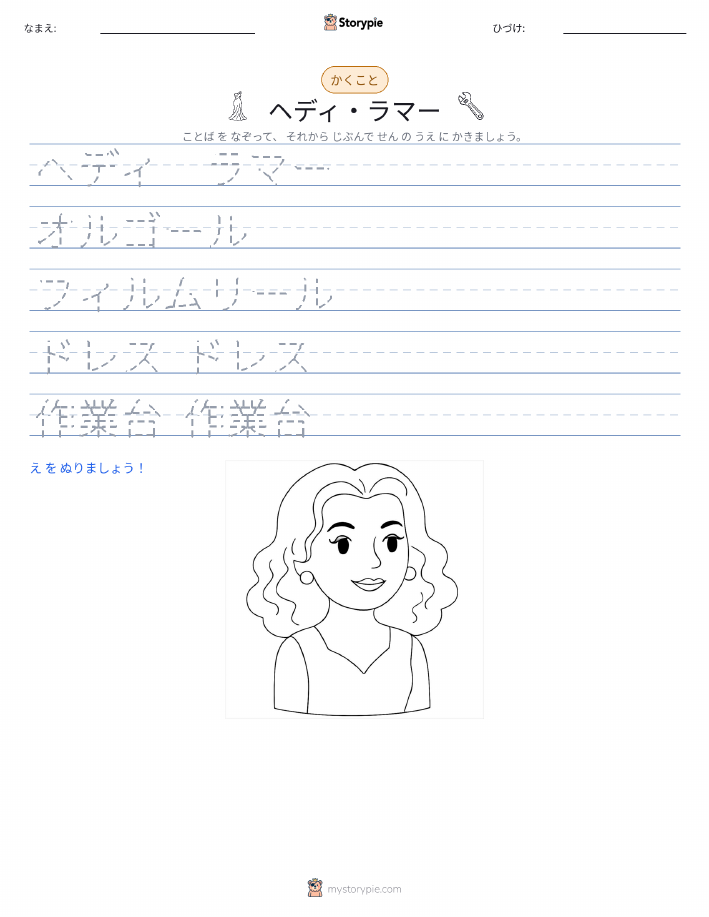 なまえ:
Storypie
ひづけ:
かくこと
ヘディ・ラマー
ことば を なぞって、 それから じぶんで せん の うえ に かきましょう。
ヘディ ラマー
オルゴール
フィルムリール
ドレス ドレス
作業台 作業台
え を ぬりましょう！
mystorypie.com